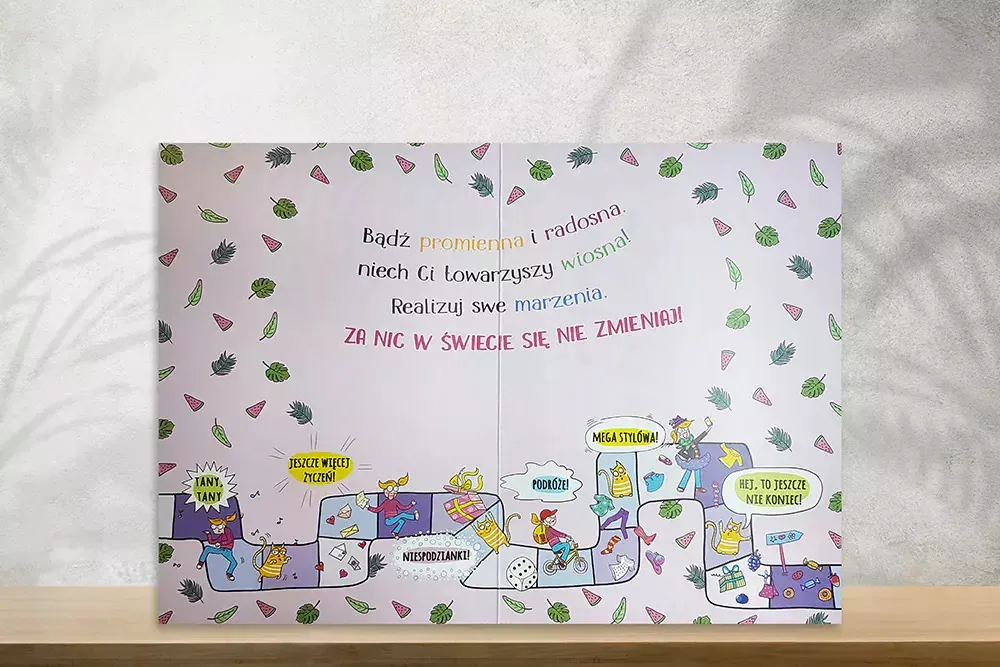 Bądź promienna i radosna.
niech Ci towarzyszy wiosna!
Realizuj swe marzenia.
ZA NIC W ŚWIECIE SIĘ NIE ZMIENIAJ!
TANY,
TANY
JESZCZE WIĘCEJ
ŻYCZEŃ!
NIESPODZIANKI!
PODRÓŻE!
MEGA STYLÓWA!
HEJ, TO JESZCZE
NIE KONIEC!